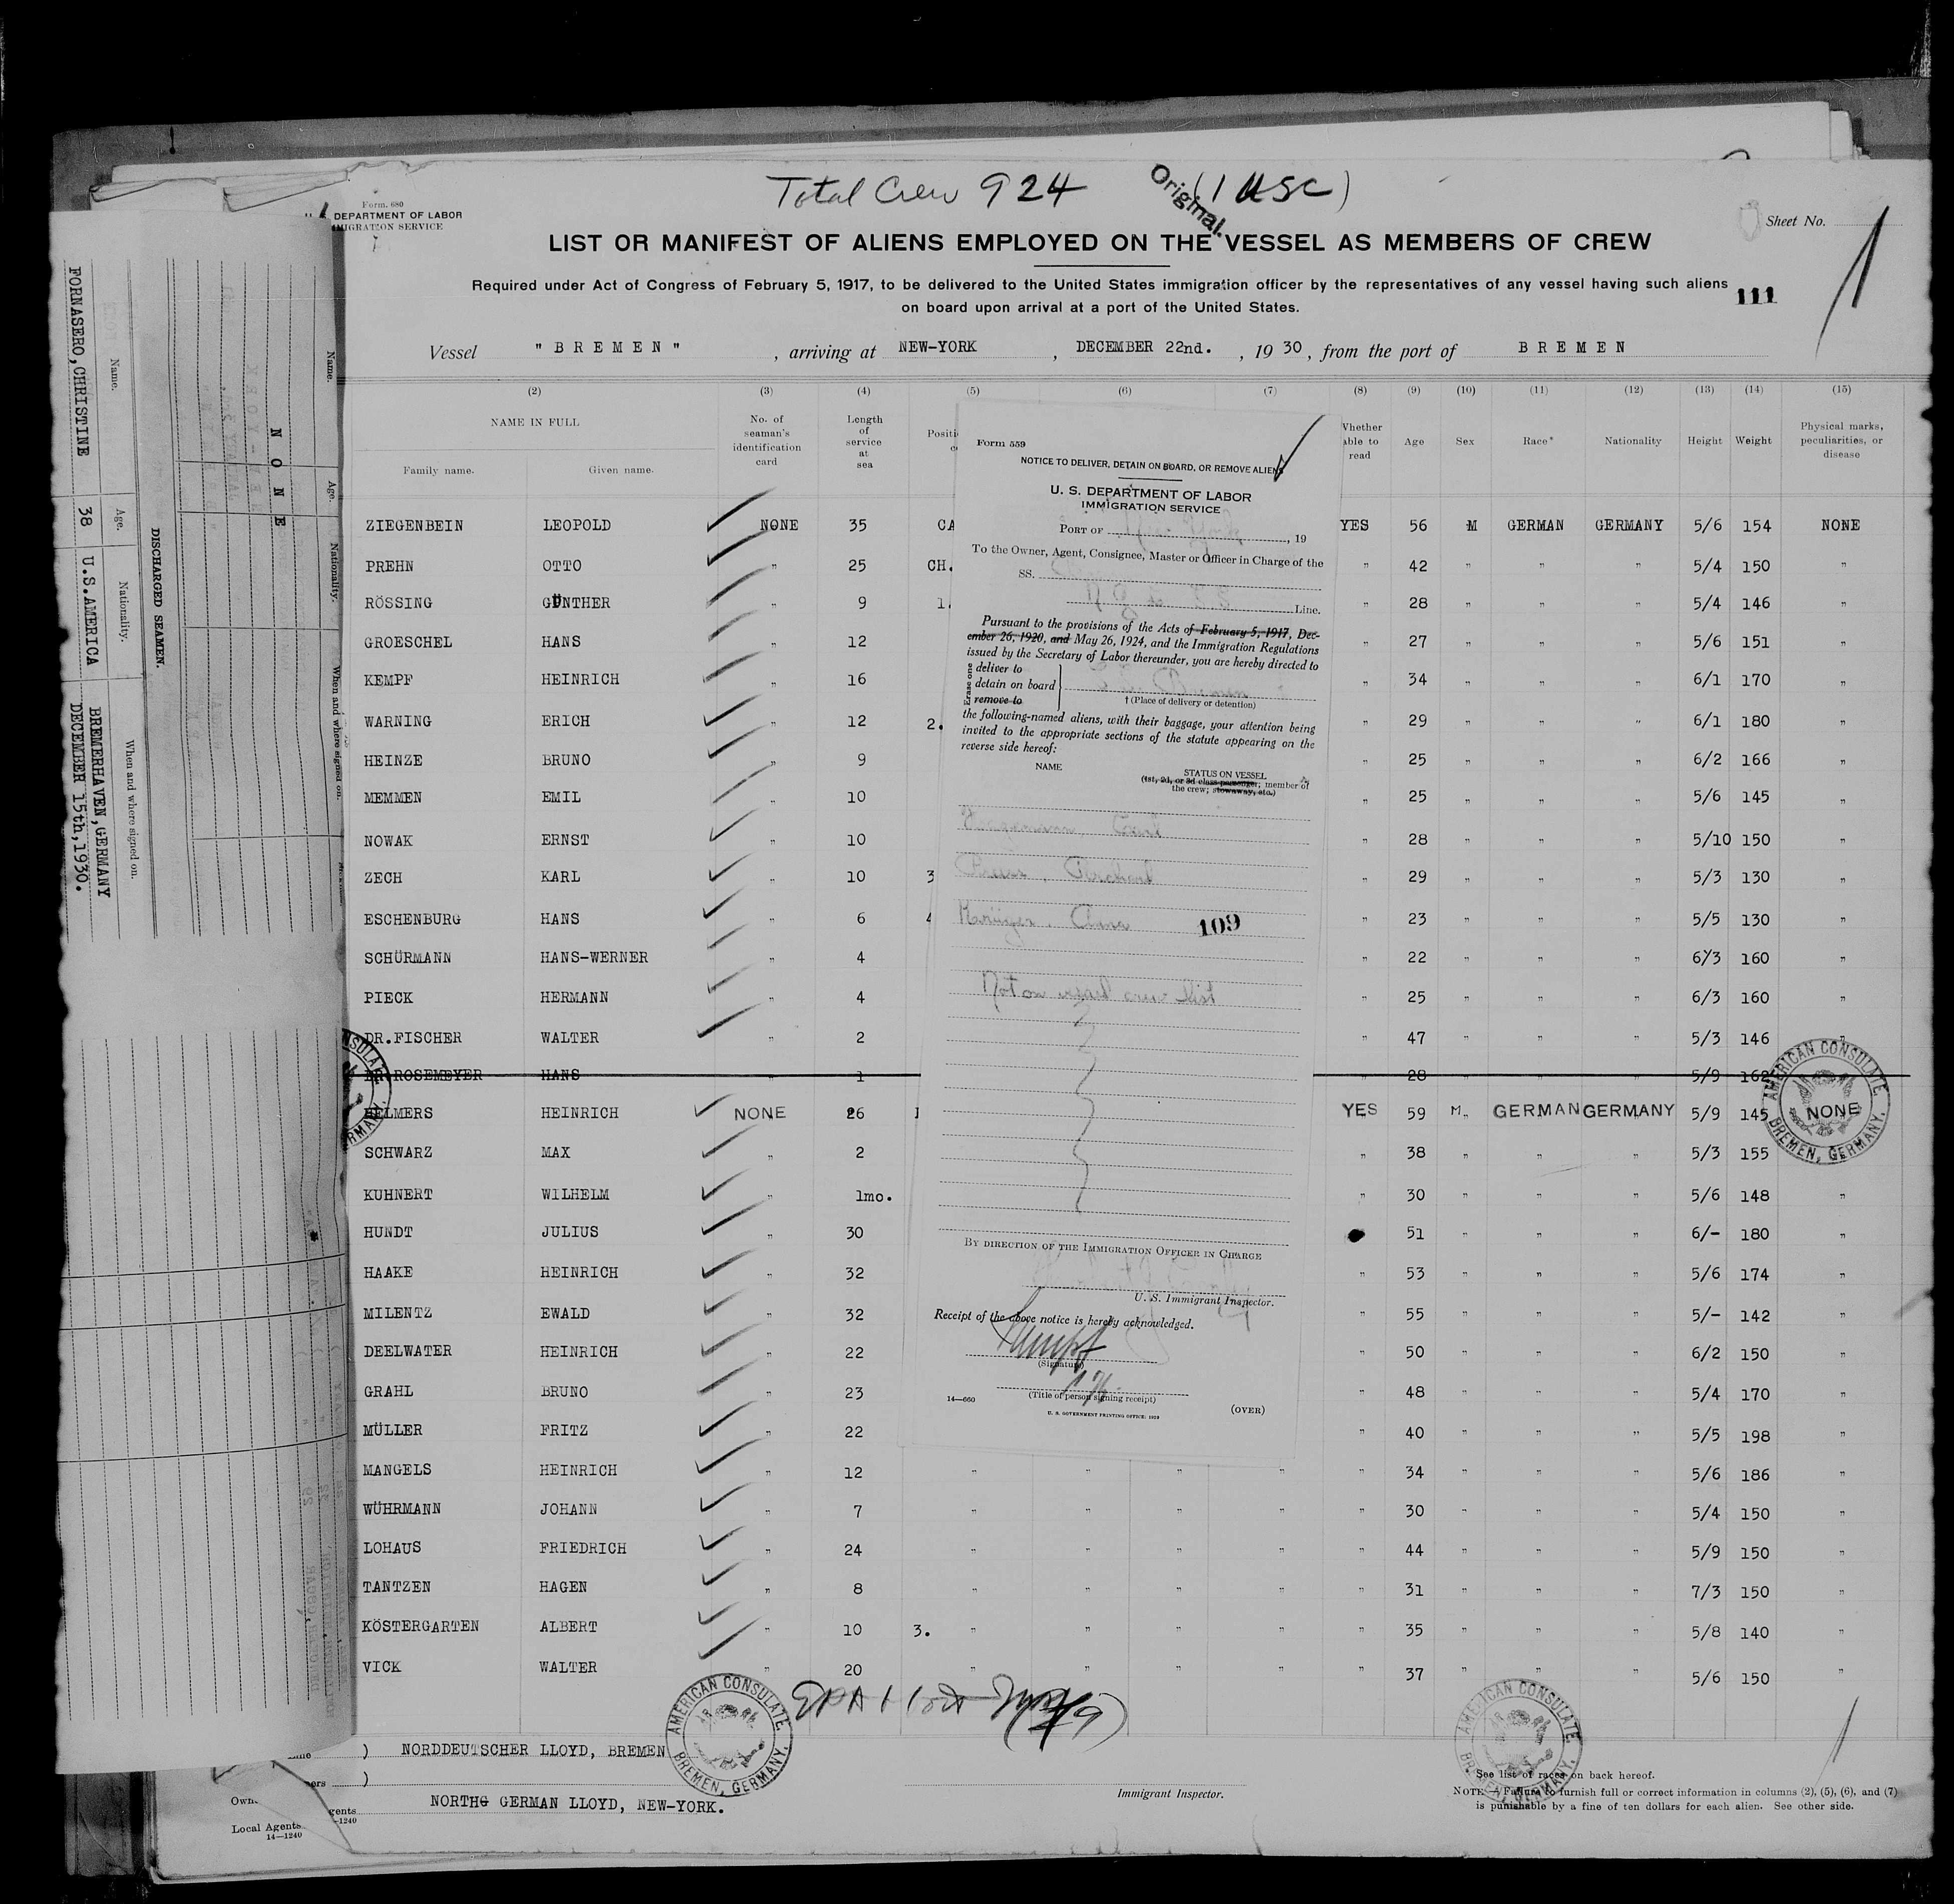 Total Crew 924 (1 USC)
Original.
Form. 680
DEPARTMENT OF LABOR
IMMIGRATION SERVICE
Sheet No. 1
LIST OR MANIFEST OF ALIENS EMPLOYED ON THE VESSEL AS MEMBERS OF CREW
Required under Act of Congress of February 5, 1917, to be delivered to the United States immigration officer by the representatives of any vessel having such aliens
on board upon arrival at a port of the United States.
111
Vessel "BREMEN", arriving at NEW-YORK, DECEMBER 22nd., 1930, from the port of BREMEN
(2) (3) (4) (5) (6) (7) (8) (9) (10) (11) (12) (13) (14) (15)
NAME IN FULL
Family name. Given name.
No. of seaman's identification card
Length of service at sea
Whether able to read
Age Sex Race* Nationality Height Weight
Physical marks, peculiarities, or disease
ZIEGENBEIN LEOPOLD NONE 35 CA YES 56 M GERMAN GERMANY 5/6 154 NONE
PREHN OTTO " 25 CH. " 42 " " " 5/4 150 "
RÖSSING GÜNTHER " 9 1. " 28 " " " 5/4 146 "
GROESCHEL HANS " 12 " 27 " " " 5/6 151 "
KEMPF HEINRICH " 16 " 34 " " " 6/1 170 "
WARNING ERICH " 12 2. " 29 " " " 6/1 180 "
HEINZE BRUNO " 9 " 25 " " " 6/2 166 "
MEMMEN EMIL " 10 " 25 " " " 5/6 145 "
NOWAK ERNST " 10 " 28 " " " 5/10 150 "
ZECH KARL " 10 3 " 29 " " " 5/3 130 "
ESCHENBURG HANS " 6 4 " 23 " " " 5/5 130 "
SCHÜRMANN HANS-WERNER " 4 " 22 " " " 6/3 160 "
PIECK HERMANN " 4 " 25 " " " 6/3 160 "
DR.FISCHER WALTER " 2 " 47 " " " 5/3 146 "
DR.ROSEMEYER HANS " 1 " 28 " " " 5/9 162
HELMERS HEINRICH NONE 26 YES 59 M. GERMAN GERMANY 5/9 145 NONE
SCHWARZ MAX " 2 " 38 " " " 5/3 155 "
KUHNERT WILHELM " 1mo. " 30 " " " 5/6 148 "
HUNDT JULIUS " 30 51 " " " 6/- 180 "
HAAKE HEINRICH " 32 " 53 " " " 5/6 174 "
MILENTZ EWALD " 32 " 55 " " " 5/- 142 "
DEELWATER HEINRICH " 22 " 50 " " " 6/2 150 "
GRAHL BRUNO " 23 " 48 " " " 5/4 170 "
MÜLLER FRITZ " 22 " 40 " " " 5/5 198 "
MANGELS HEINRICH " 12 " " " " " 34 " " " 5/6 186 "
WÜHRMANN JOHANN " 7 " " " " " 30 " " " 5/4 150 "
LOHAUS FRIEDRICH " 24 " " " " " 44 " " " 5/9 150 "
TANTZEN HAGEN " 8 " " " " " 31 " " " 7/3 150 "
KÖSTERGARTEN ALBERT " 10 3. " " " " " 35 " " " 5/8 140 "
VICK WALTER " 20 " " " " " 37 " " " 5/6 150 "
Form 559
NOTICE TO DELIVER, DETAIN ON BOARD, OR REMOVE ALIENS
U. S. DEPARTMENT OF LABOR
IMMIGRATION SERVICE
PORT OF New York, 19
To the Owner, Agent, Consignee, Master or Officer in Charge of the
SS.
Line.
Pursuant to the provisions of the Acts of February 5, 1917, Dec-
ember 26, 1920, and May 26, 1924, and the Immigration Regulations
issued by the Secretary of Labor thereunder, you are hereby directed to
Erase one
deliver to
detain on board
remove to
Bremen
† (Place of delivery or detention)
the following-named aliens, with their baggage, your attention being
invited to the appropriate sections of the statute appearing on the
reverse side hereof:
NAME
STATUS ON VESSEL
(1st, 2d, or 3d class passenger; member of
the crew; stowaway, etc.)
Krüger, Anna 109
Not on vessel crew list
BY DIRECTION OF THE IMMIGRATION OFFICER IN CHARGE
U. S. Immigrant Inspector.
Receipt of the above notice is hereby acknowledged.
(Signature)
(Title of person signing receipt)
14—660
U. S. GOVERNMENT PRINTING OFFICE: 1929
(OVER)
AMERICAN CONSULATE BREMEN, GERMANY.
AMERICAN CONSULATE. BREMEN, GERMANY.
AMERICAN CONSULATE. BREMEN, GERMANY.
NORDDEUTSCHER LLOYD, BREMEN
NORTHG GERMAN LLOYD, NEW-YORK.
Local Agents
14—1240
Immigrant Inspector.
See list of races on back hereof.
NOTE.—Failure to furnish full or correct information in columns (2), (5), (6), and (7)
is punishable by a fine of ten dollars for each alien. See other side.
DISCHARGED SEAMEN.
Name. Age. Nationality. When and where signed on.
FORNASERO,CHRISTINE 38 U.S.AMERICA BREMERHAVEN,GERMANY
DECEMBER 15th,1930.
Name. Age. Nationality. When and where signed on.
NONE